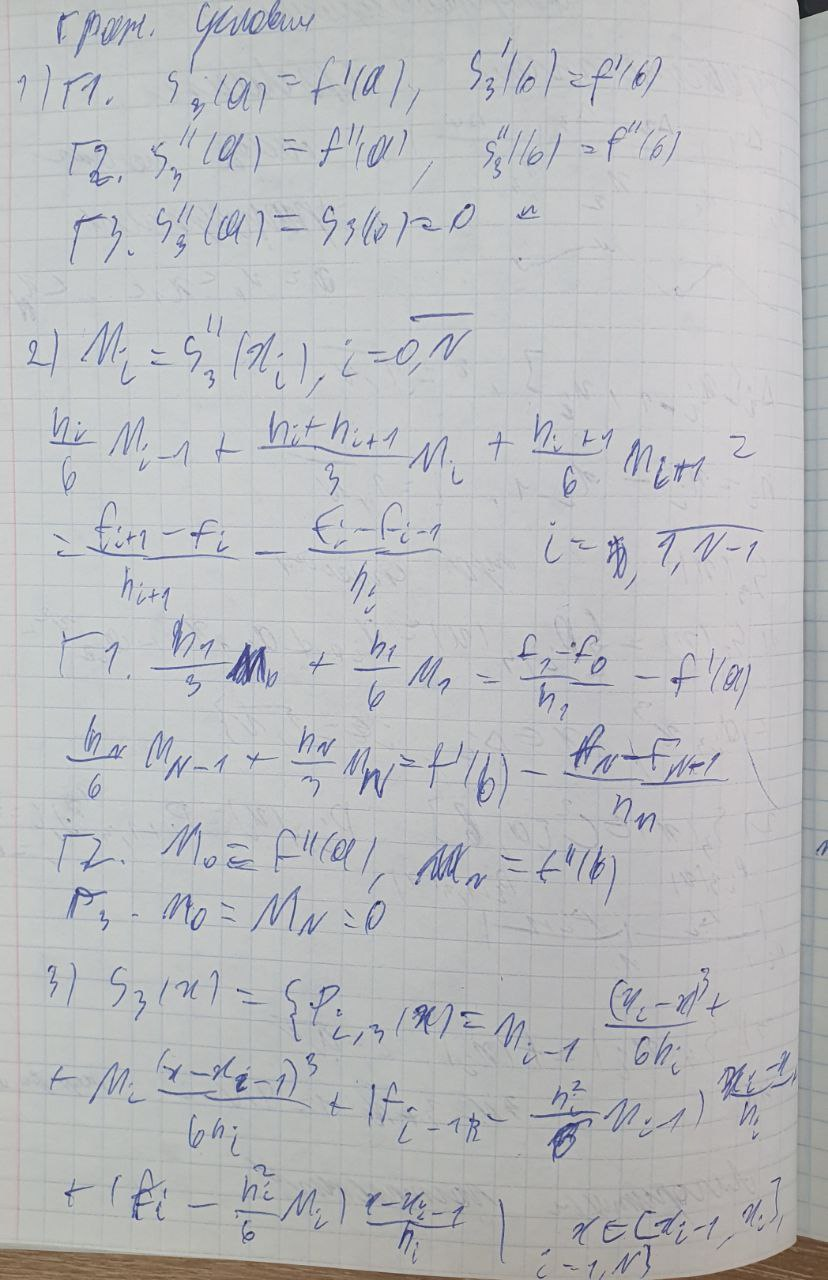 Гран. условия
1) Г1. S₃'(a) = f'(a), S₃'(b) = f'(b)
Г2. S₃''(a) = f''(a), S₃''(b) = f''(b)
Г3. S₃''(a) = S₃(b) = 0
2) Mᵢ = S₃''(xᵢ), i = \overline{0,N}
hᵢ/6 Mᵢ₋₁ + (hᵢ + hᵢ₊₁)/3 Mᵢ + hᵢ₊₁/6 Mᵢ₊₁ =
= (fᵢ₊₁ - fᵢ)/hᵢ₊₁ - (fᵢ - fᵢ₋₁)/hᵢ i = \overline{1, N-1}
Г1. h₁/3 M₀ + h₁/6 M₁ = (f₁ - f₀)/h₁ - f'(a)
h_N/6 M_{N-1} + h_N/3 M_N = f'(b) - (f_N - f_{N+1})/h_N
Г2. M₀ = f''(a), M_N = f''(b)
Г3. M₀ = M_N = 0
3) S₃(x) = {Pᵢ,₃(x) = Mᵢ₋₁ (xᵢ - x)³/6hᵢ +
+ Mᵢ (x - xᵢ₋₁)³/6hᵢ + (fᵢ₋₁ - hᵢ²/6 Mᵢ₋₁) (xᵢ - x)/hᵢ
+ (fᵢ - hᵢ²/6 Mᵢ) (x - xᵢ₋₁)/hᵢ | x ∈ [xᵢ₋₁, xᵢ],
i = 1, N}